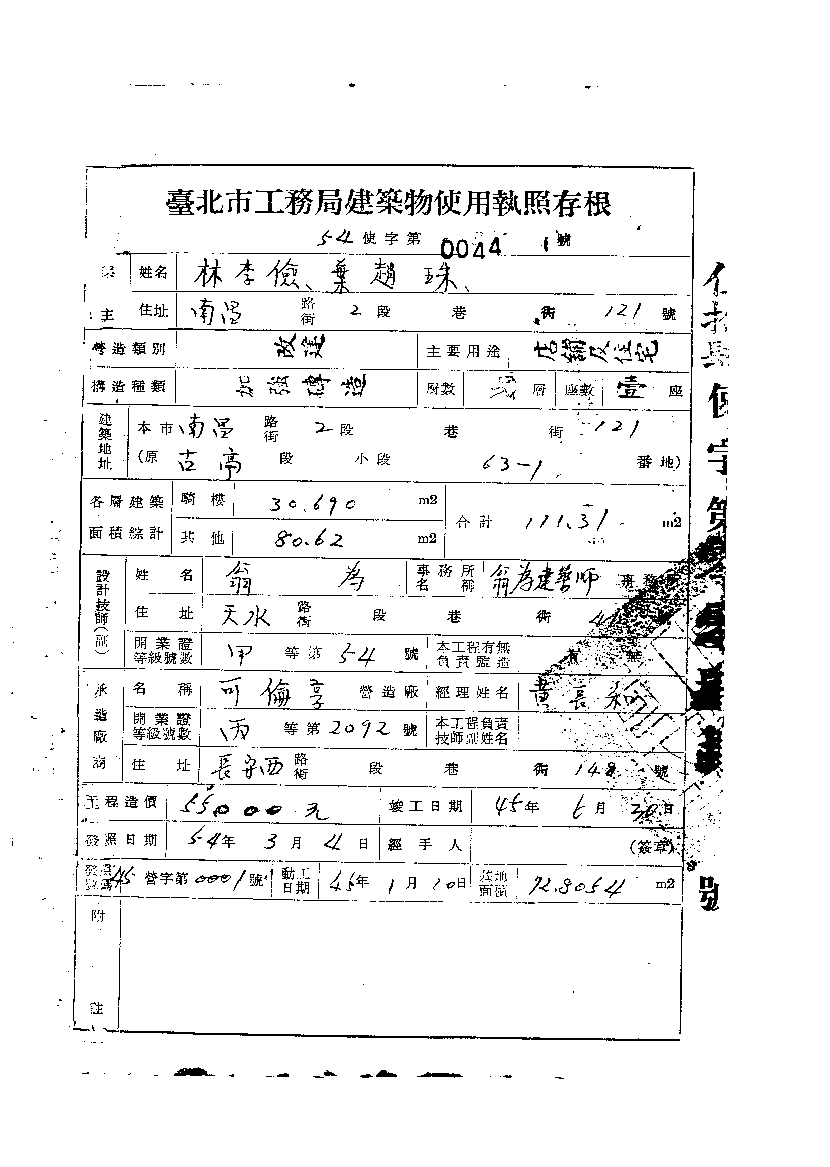 臺北市工務局建築物使用執照存根
54使字第0044 1號
姓名 林李儉、葉趙珠、
主 住址 南昌 路街 2段 巷 街 121 號
營造類別 改建 主要用途 店鋪及住宅
構造種類 加強磚造 層數 層 座數 壹 座
建築地址 本市 南昌 路街 2段 巷 街 121
(原 古亭 段 小段 63-1 番地)
各層建築面積綜計 騎樓 30.690 m2 合計 111.31 m2
其他 80.62 m2
設計技師(副) 姓名 翁為 事務所名稱 翁為建築師
住址 天水 路街 段 巷 街
開業證等級號數 甲 等第 54 號 本工程有無負責監造 有 無
承造廠商 名稱 可倫享 營造廠 經理姓名 黃長
開業證等級號數 丙 等第 2092 號 本工程負責技師姓名
住址 長安西 路街 段 巷 街 148 號
工程造價 55000元 竣工日期 45年 6月 30日
發照日期 54年 3月 4日 經手人 (簽章)
45 營字第0001號 動工日期 45年 1月 10日 基地面積 92.8054 m2
附註
使字第
號